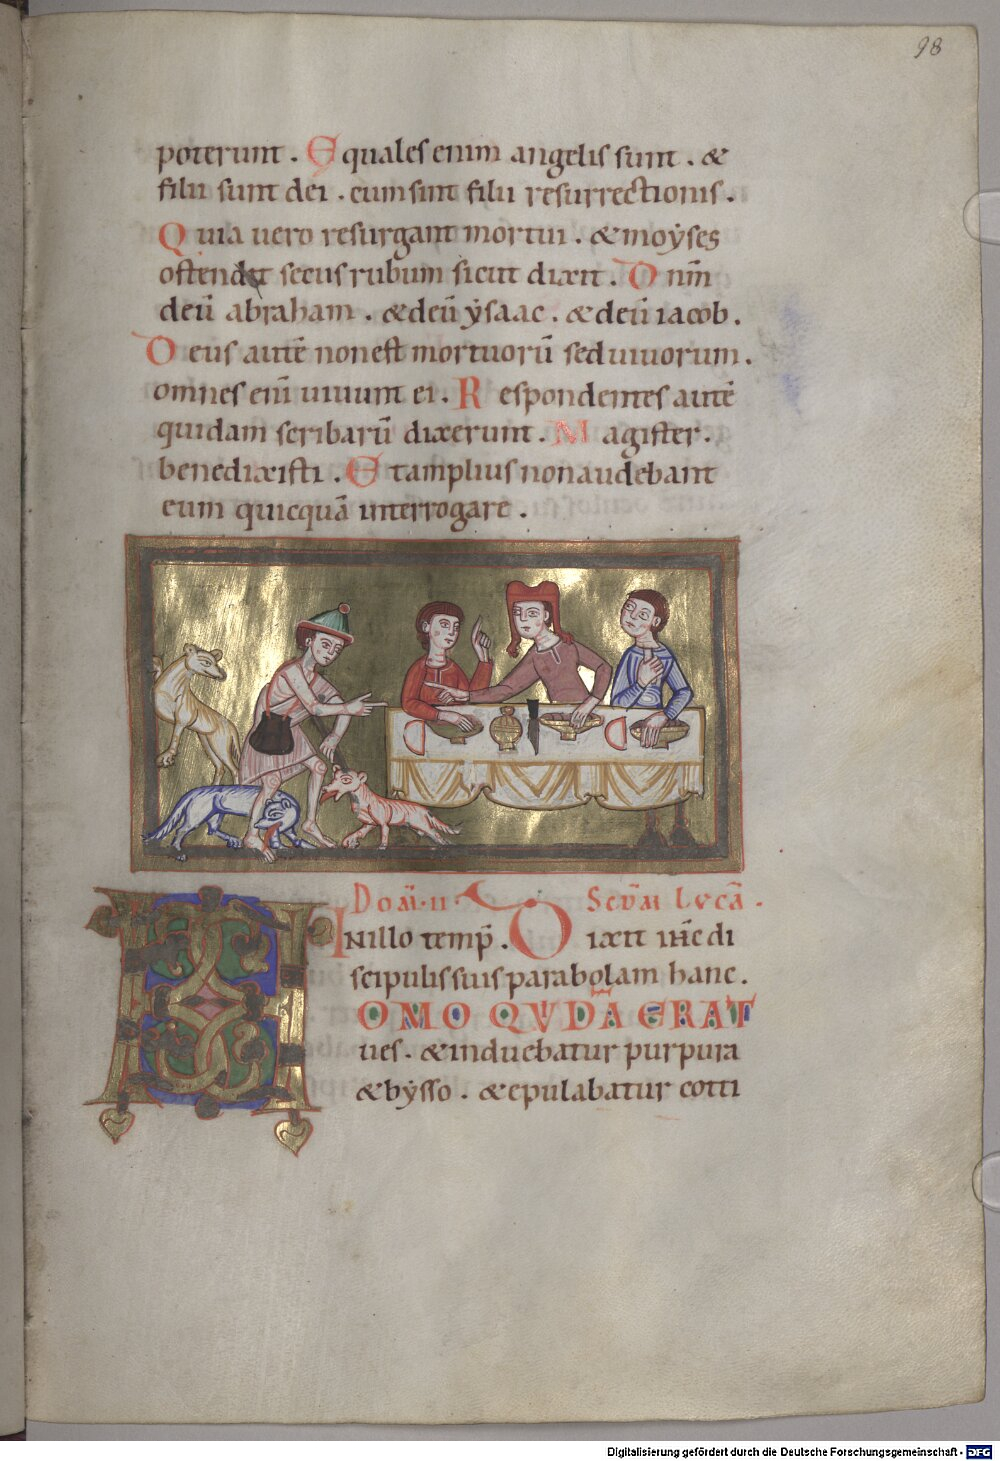 98
poterunt. Equales enim angelis sunt. &
filii sunt dei. cum sint filii resurrectionis.
Quia uero resurgant mortui. & moẏses
ostendit secus rubum sicut dixit. Dnm̄
deū abraham. & deū ẏsaac. & deū iacob.
Deus autē non est mortuorū sed uiuorum.
omnes eni͞ uiuunt ei. Respondentes autē
quidam scribarū dixerunt. Magister.
benedixisti. Et amplius non audebant
eum quicquā interrogare.
Doāi. II. Scd̄m Lvcā.
In illo temp̄. Dixit ih̄c di
scipulis suis parabolam hanc.
HOMO QVDĀ ERAT
ues. & induebatur purpura
& bẏsso. & epulabatur cotti
Digitalisierung gefördert durch die Deutsche Forschungsgemeinschaft - DFG